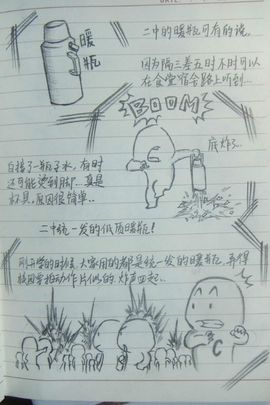 暖
瓶
二中的暖瓶可有的说,
因为隔三差五时不时可以
在食堂宿舍路上听到...
BOOM
底炸了..
白接了一瓶子水,有时
还可能烫到脚...真是
杯具,原因很简单..
二中统一发的低质暖瓶!
刚开学的时候,大家用的都是统一发的暖瓶,弄得
校园里拍动作片似的,炸声四起..